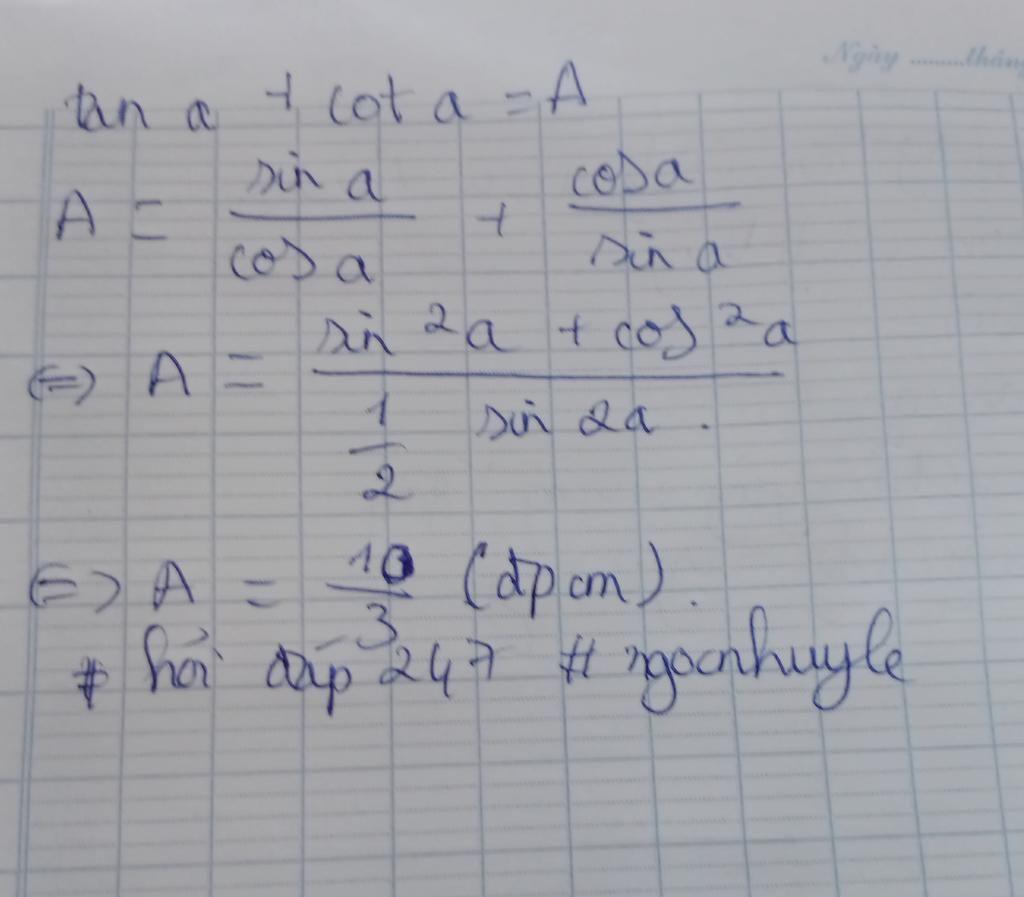 Ngày .........tháng
tan a + cot a = A
A = sin a / cos a + cos a / sin a
⇔ A = sin ²a + cos ²a / 1/2 sin 2a .
⇔ A = 10/3 (đpcm).
# hỏi đáp 247 # ngocnhuyle